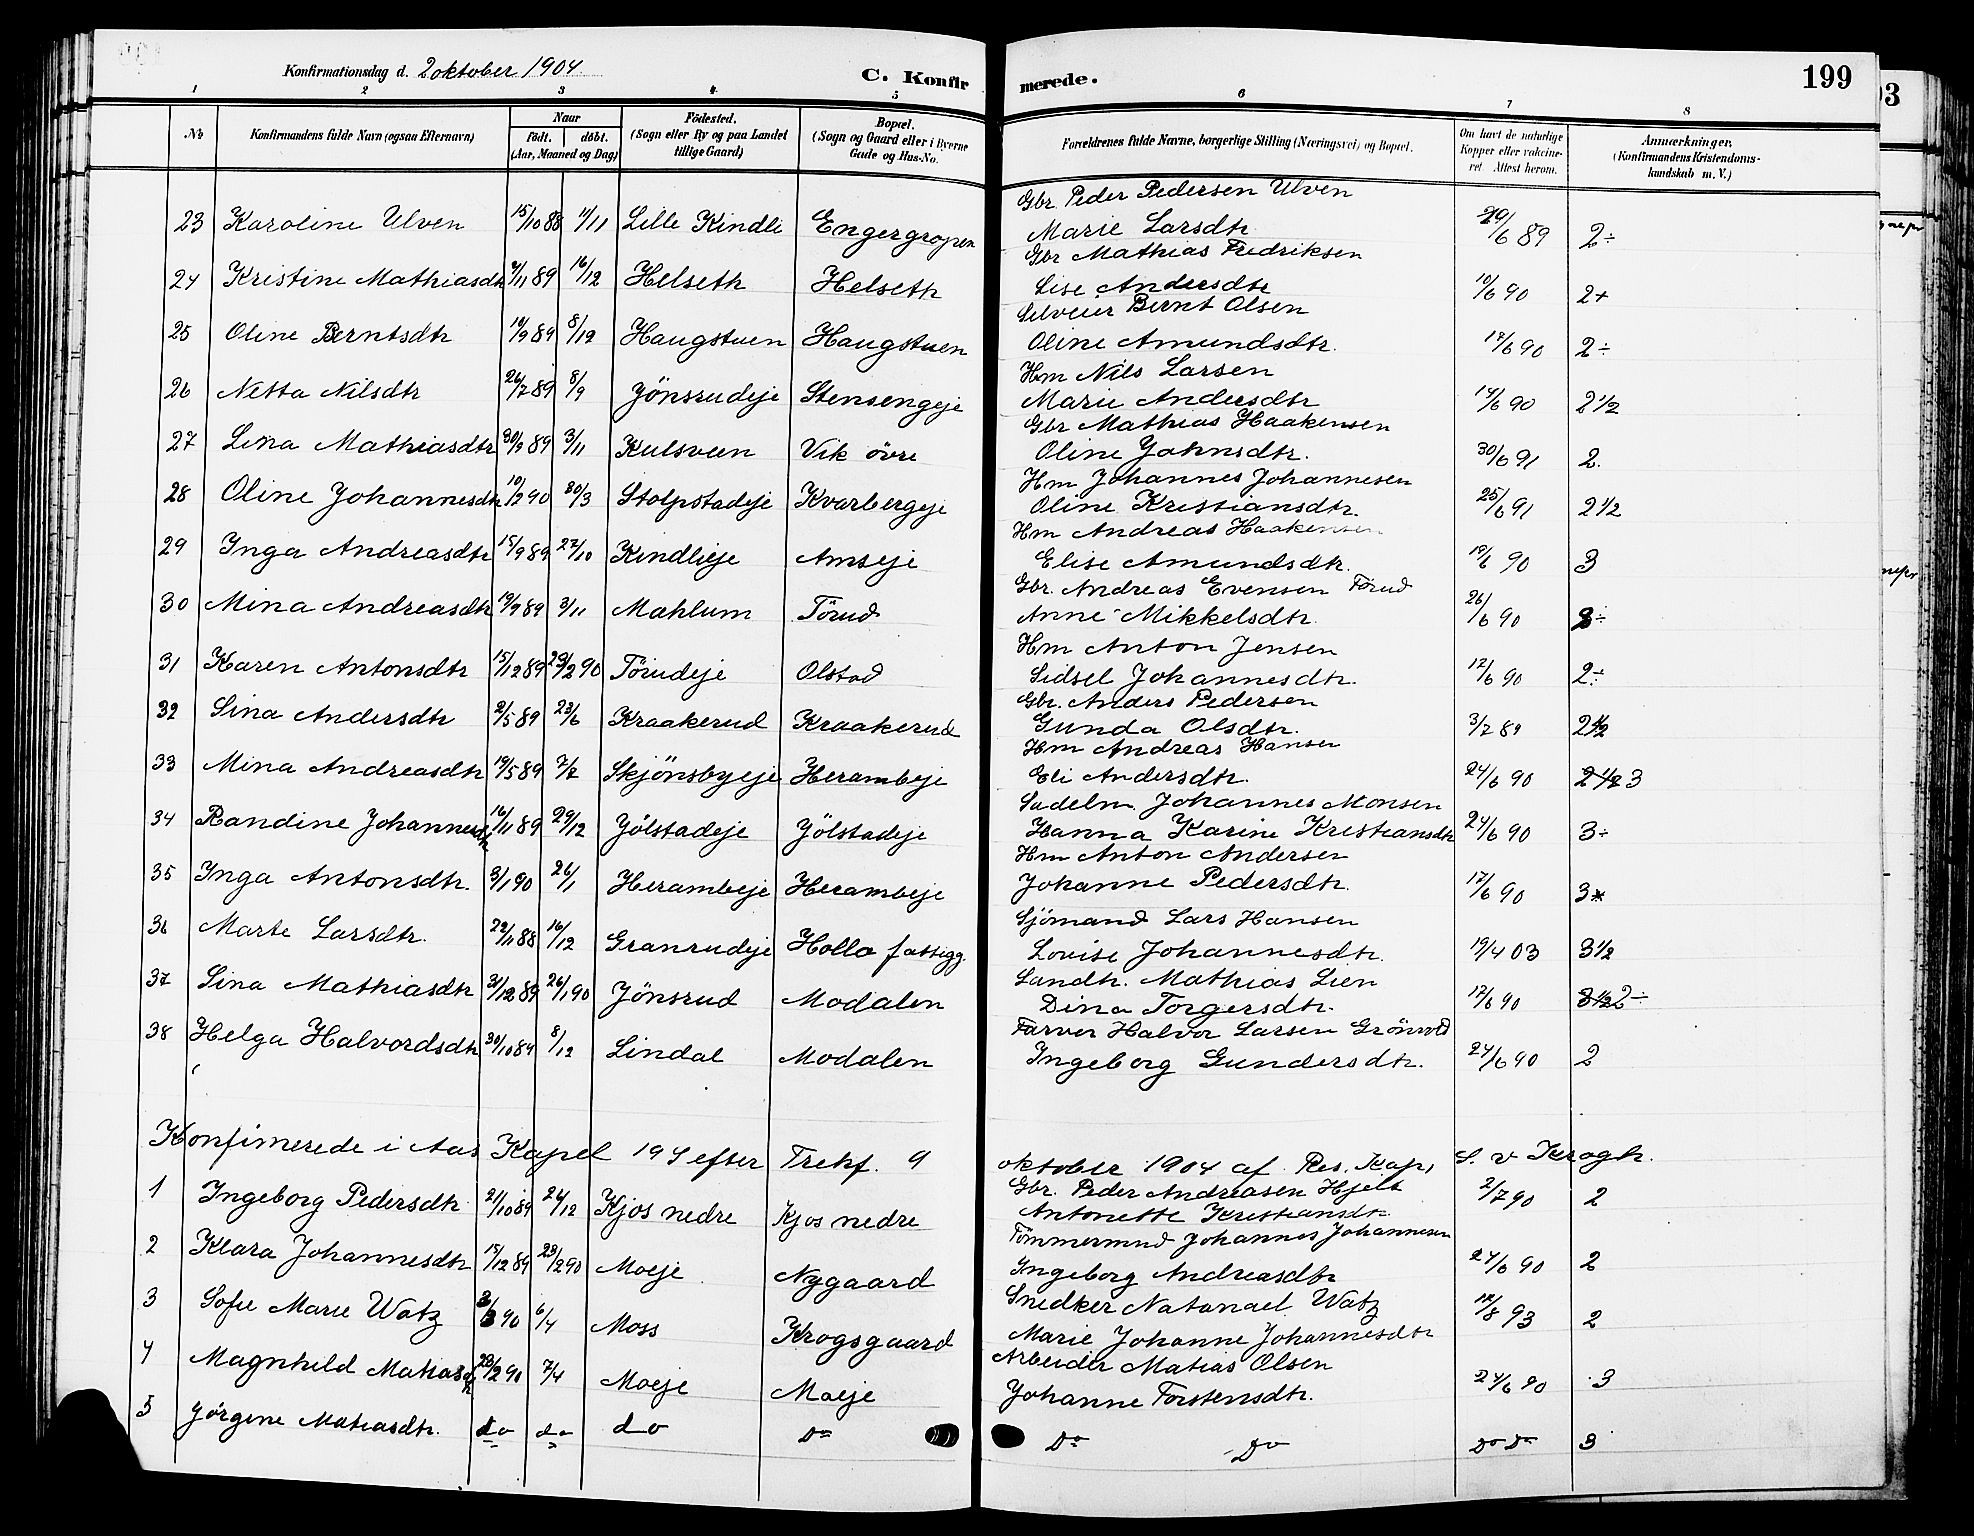 Konfirmationsdag d. 2 oktober 1904.
C. Konfir
merede.
199
1 2 3 4 5 6 7 8
No
Konfirmandens fulde Navn (ogsaa Efternavn)
Naar
Født. døbt.
(Aar, Maaned og Dag)
Fødested.
(Sogn eller By og paa Landet
tillige Gaard)
Bopæl.
(Sogn og Gaard eller i Byerne
Gade og Hus-No.
Forældrenes fulde Navne, borgerlige Stilling (Næringsvei) og Bopæl.
Om havt de naturlige
Kopper eller vakcine-
ret. Attest herom.
Anmærkninger.
(Konfirmandens Kristendoms-
kundskab m. V.)
Gbr. Peder Pedersen Ulven
23 Karoline Ulven 15/10 88 11/11 Lille Kindli Engergropen Marie Larsdtr. 20/6 89 2÷
Gbr Mathias Fredriksen
24 Kristine Mathiasdtr 7/11 89 16/12 Helseth Helseth Lise Andersdtr 10/6 90 2+
Selveier Bernt Olsen
25 Oline Berntsdtr 10/9 89 8/12 Haugstuen Haugstuen Oline Amundsdtr. 18/6 90 2÷
Hm Nils Larsen
26 Netta Nilsdtr 26/7 89 8/9 Jönsrudeje Stensengeje Marie Andersdtr 14/6 90 2 1/2
Gbr Mathias Haakensen
27 Lina Mathiasdtr 30/9 89 3/11 Kulsveen Vik övre Oline Jahnsdtr. 30/6 91 2.
Hm Johannes Johannesen
28 Oline Johannesdtr 10/2 90 30/3 Stolpstadeje Kvarbergeje Oline Kristiansdtr. 25/6 91 2 1/2
Hm Andreas Haakensen
29 Inga Andreasdtr 15/9 89 27/10 Kindlieje Amseje Elise Amundsdtr. 19/6 90 3
Gbr. Andreas Evensen Törud
30 Mina Andreasdtr 19/9 89 3/11 Mahlum Törud Anne Mikkelsdtr 26/6 90 3÷
Hm Anton Jensen
31 Karen Antonsdtr 15/12 89 23/2 90 Törudeje Olstad Sidsel Johannesdtr. 17/6 90 2÷
Gbr. Anders Pedersen
32 Lina Andersdtr 2/5 89 23/6 Kraakerud Kraakerud Gunda Olsdtr. 3/7 89 2 1/2
Hm Andreas Hansen
33 Mina Andreasdtr 19/5 89 7/7 Skjönsbyeje Herambeje Eli Andersdtr. 24/6 90 2 1/2 3
Sadelm. Johannes Monsen
34 Randine Johannesdtr 16/11 89 29/12 Jölstadeje Jölstadeje Hanna Karine Kristiansdtr 24/6 90 3÷
Hm Anton Andersen
35 Inga Antonsdtr. 3/1 90 26/1 Herambeje Herambeje Johanne Pedersdtr. 17/6 90 3
Sjömand Lars Hansen
36 Marte Larsdtr. 22/11 88 16/12 Granrudeje Holla fattigg. Lovise Johannesdtr. 19/4 03 3 1/2
Landh. Mathias Lien
37 Lina Mathiasdtr 31/12 89 26/1 90 Jönsrud Modalen Dina Torgersdtr. 17/6 90 3 1/2 2÷
Farver Halvor Larsen Grönvold
38 Helga Halvordsdtr 30/10 89 8/12 Lindal Modalen Ingeborg Gundersdtr. 24/6 90 2
Konfimerede i Aas Kapel 19 S efter Trekf. 9 oktober 1904 af Res. Kap. S. v Krogh.
Gbr. Peder Andreasen Hjelt
1 Ingeborg Pedersdtr. 21/10 89 24/12 Kjos nedre Kjos nedre Antonette Kristiansdtr 2/7 90 2
Tömmermnd Johannes Johannesen
2 Klara Johannesdtr 15/12 89 23/2 90 Moeje Nygaard Ingeborg Andreasdtr 24/6 90 2
Snedker Natanael Watz
3 Sofie Marie Watz 3/3 90 6/4 Moss Krogsgaard Marie Johanne Johannesdtr 12/8 93 2
Arbeider Matias Olsen
4 Magnhild Matiasdtr 28/2 90 7/4 Moeje Moeje Johanne Torstensdtr. 24/6 90 3
5 Jörgine Matiasdtr. do do do Do Do Do Do Do 3